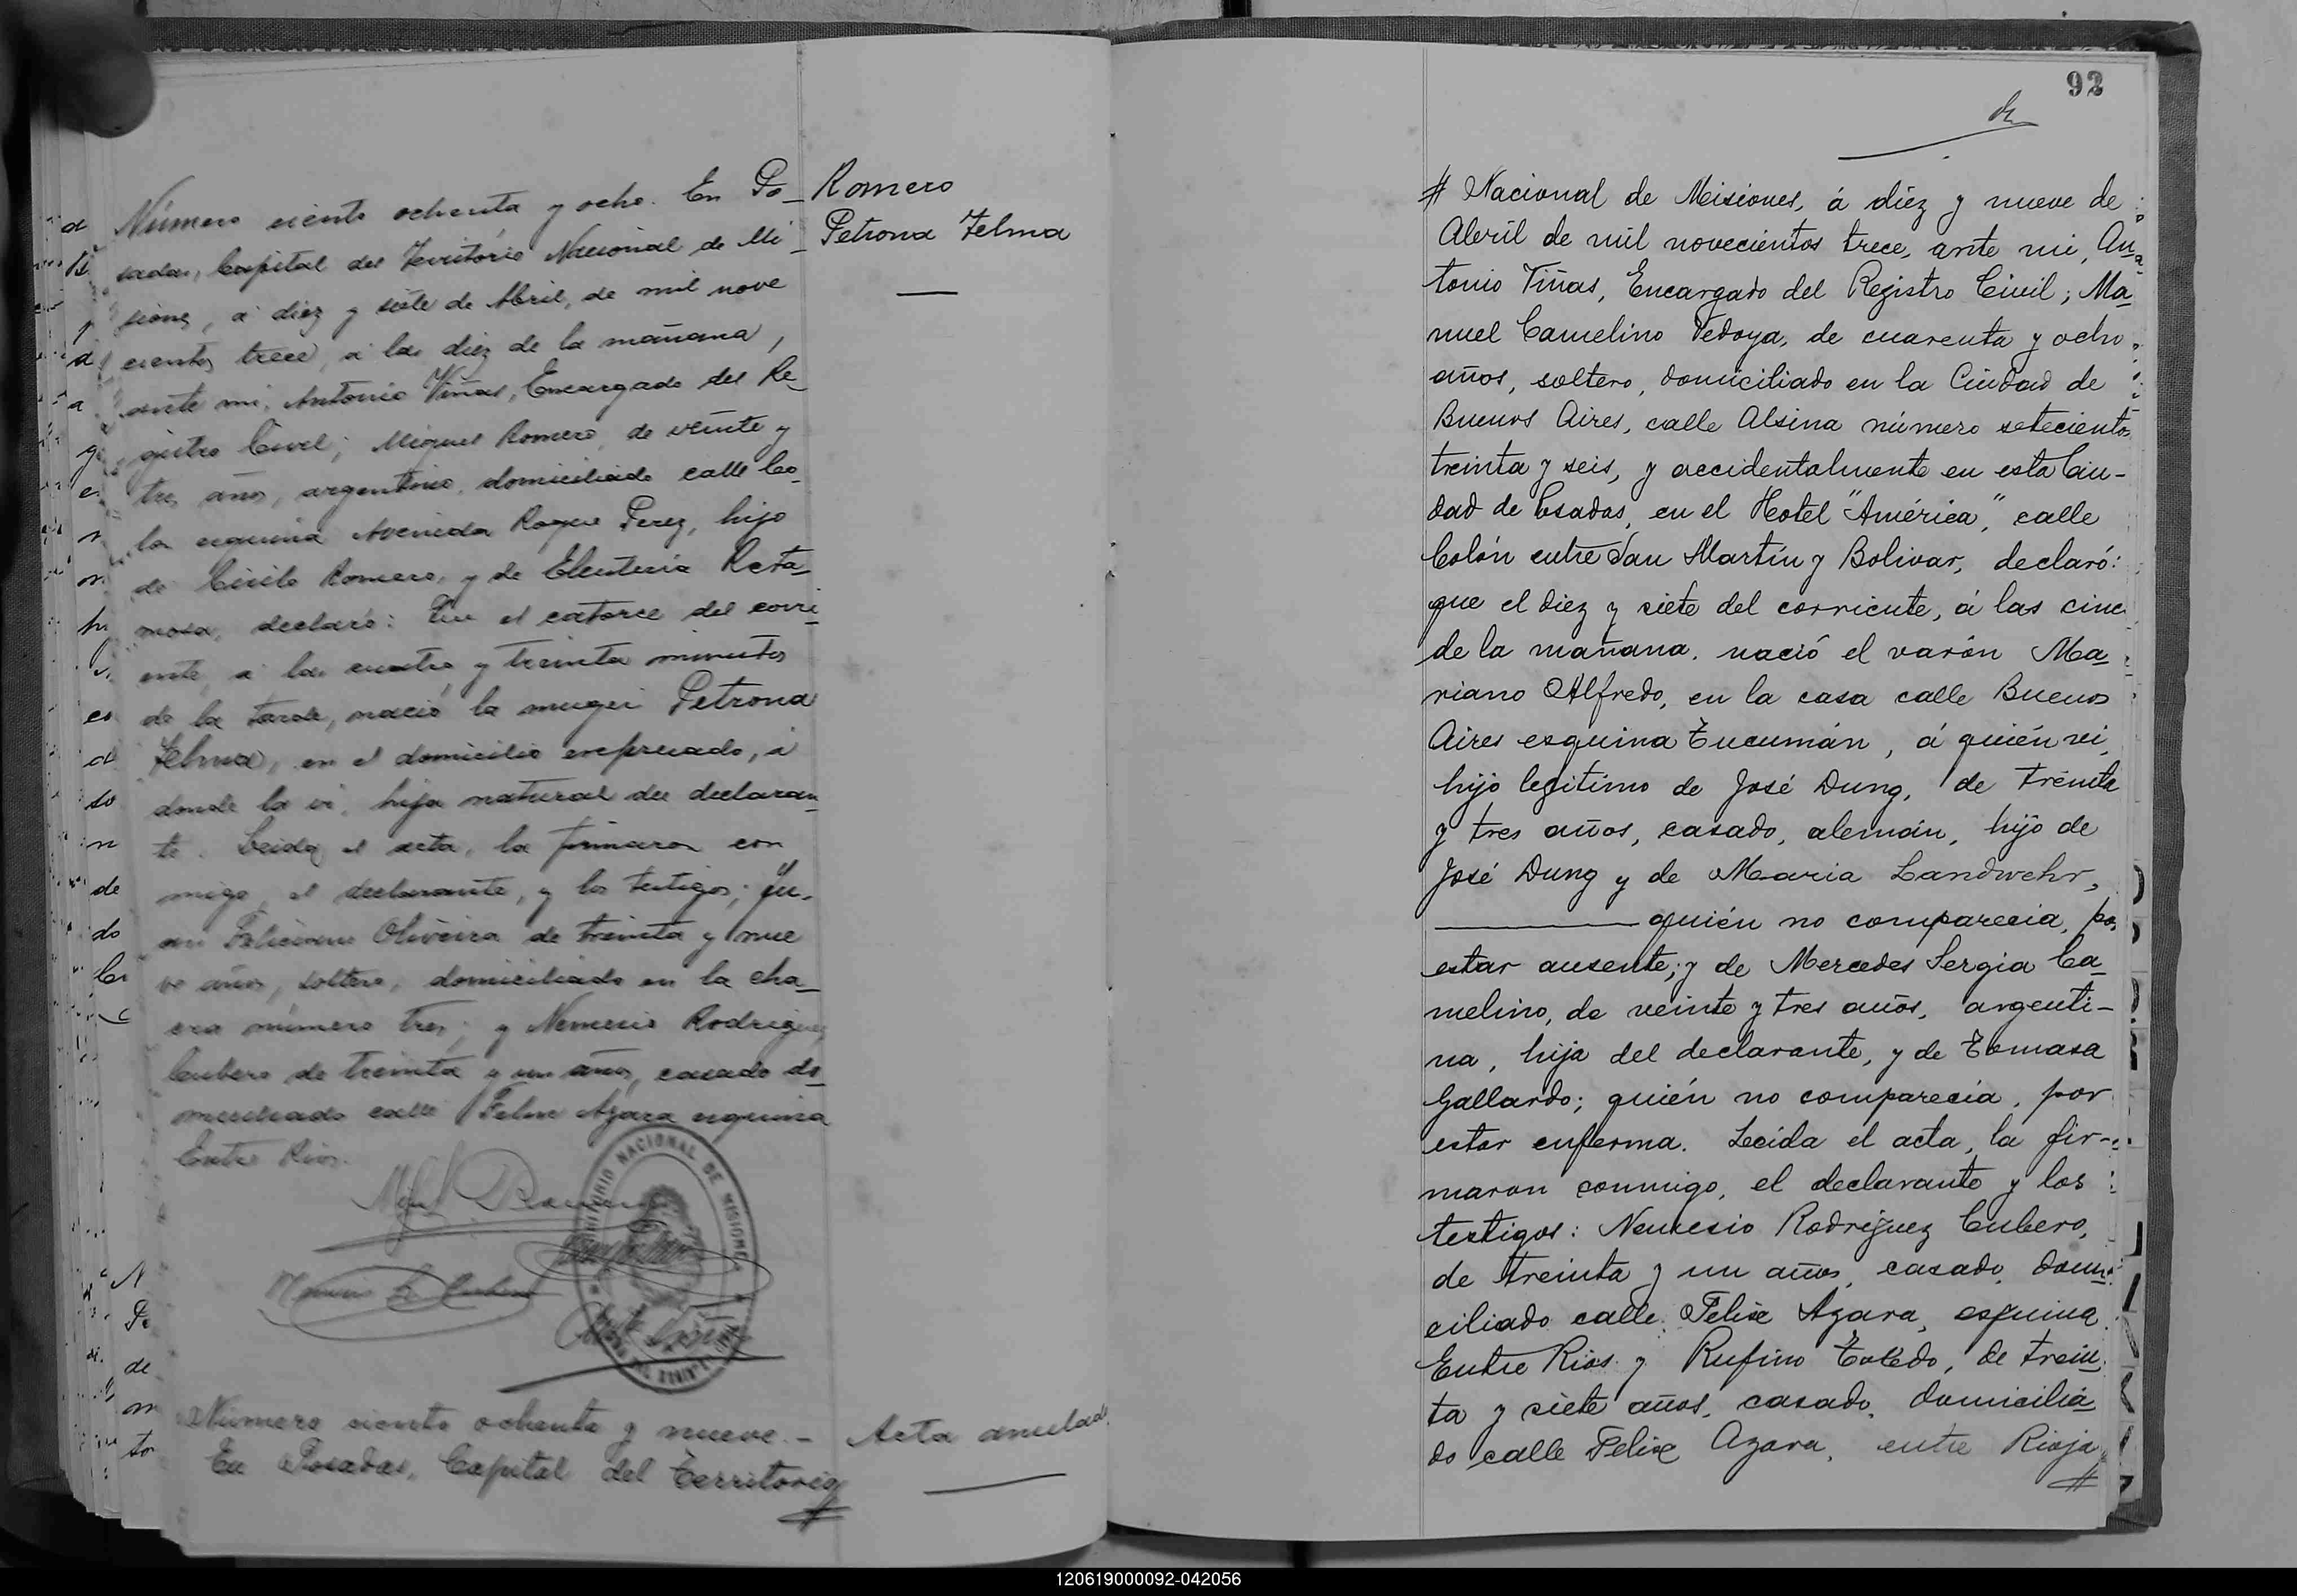 Número ciento ochenta y ocho. En Po_
sadas, Capital del Territorio Nacional de Mi_
siones, á diez y siete de Abril, de mil nove
cientos trece, á las diez de la mañana,
ante mi, Antonio Viñas, Encargado del Re_
gistro Civil; Miguel Romero, de veinte y
tres años, argentino, domiciliado calle Co_
lon esquina Avenida Roque Perez, hijo
de Cirilo Romero, y de Eleuteria Reta_
mosa, declaró: Que el catorce del corri_
ente, á las cuatro y treinta minutos
de la tarde, nació la muger Petrona
Telma, en el domicilio expresado, á
donde la vi, hija natural del declaran_
te. Leida el acta, la firmaron con
migo, el declarante, y los testigos; Ju_
an Feliciano Oliveira de treinta y nue
ve años, soltero, domiciliado en la cha_
cra número tres; y Nemesio Rodriguez
Cubero de treinta y un años, casado do_
miciliado calle Felix Azara esquina
Entre Rios.
Romero
Petrona Telma
TERRITORIO NACIONAL DE MISIONES
Número ciento ochenta y nueve.-
En Posadas, Capital del Territorio
#
Acta anulada
92
# Nacional de Misiones, á diéz y nueve de
Abríl de mil novecientos trece, ante mi, An_
tonio Viñas, Encargado del Registro Civil; Ma_
nuel Camelino Vedoya, de cuarenta y ocho
años, soltero, domiciliado en la Ciudad de
Buenos Aires, calle Alsina número setecientos
treinta y seis, y accidentalmente en esta Ciu-
dad de Posadas, en el Hotel "América", calle
Colón entre San Martín y Bolivar, declaró:
que el diez y siete del corriente, á las cinc
de la mañana, nació el varón Ma_
riano Alfredo, en la casa calle Buenos
Aires esquina Tucumán, á quién vi,
hijo legítimo de José Dung, de treinta
y tres años, casado, alemán, hijo de
José Dung y de Maria Landwehr,
quién no comparecia, por
estar ausente; y de Mercedes Sergia Ca_
melino, de veinte y tres años, argenti-
na, hija del declarante, y de Tomasa
Gallardo; quién no comparecia, por
estar enferma. Leida el acta, la fir-
maron conmigo, el declarante y los
testigos: Nemesio Rodríguez Cubero,
de treinta y un años, casado, domi
ciliado calle Felix Azara, esquina
Entre Rios y Rufino Toledo, de trein_
ta y siete años, casado, domicilia_
do calle Felix Azara, entre Rioja
#
120619000092-042056